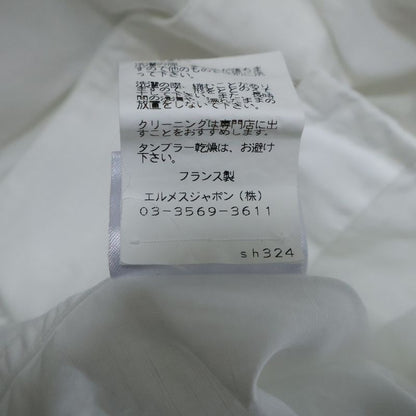 って下さい。
放置をしないで下さい。
クリーニングは専門店に出
すことをおすすめします。
タンブラー乾燥は、お避け
下さい。
フランス製
エルメスジャポン(株)
03-3569-3611
sh324